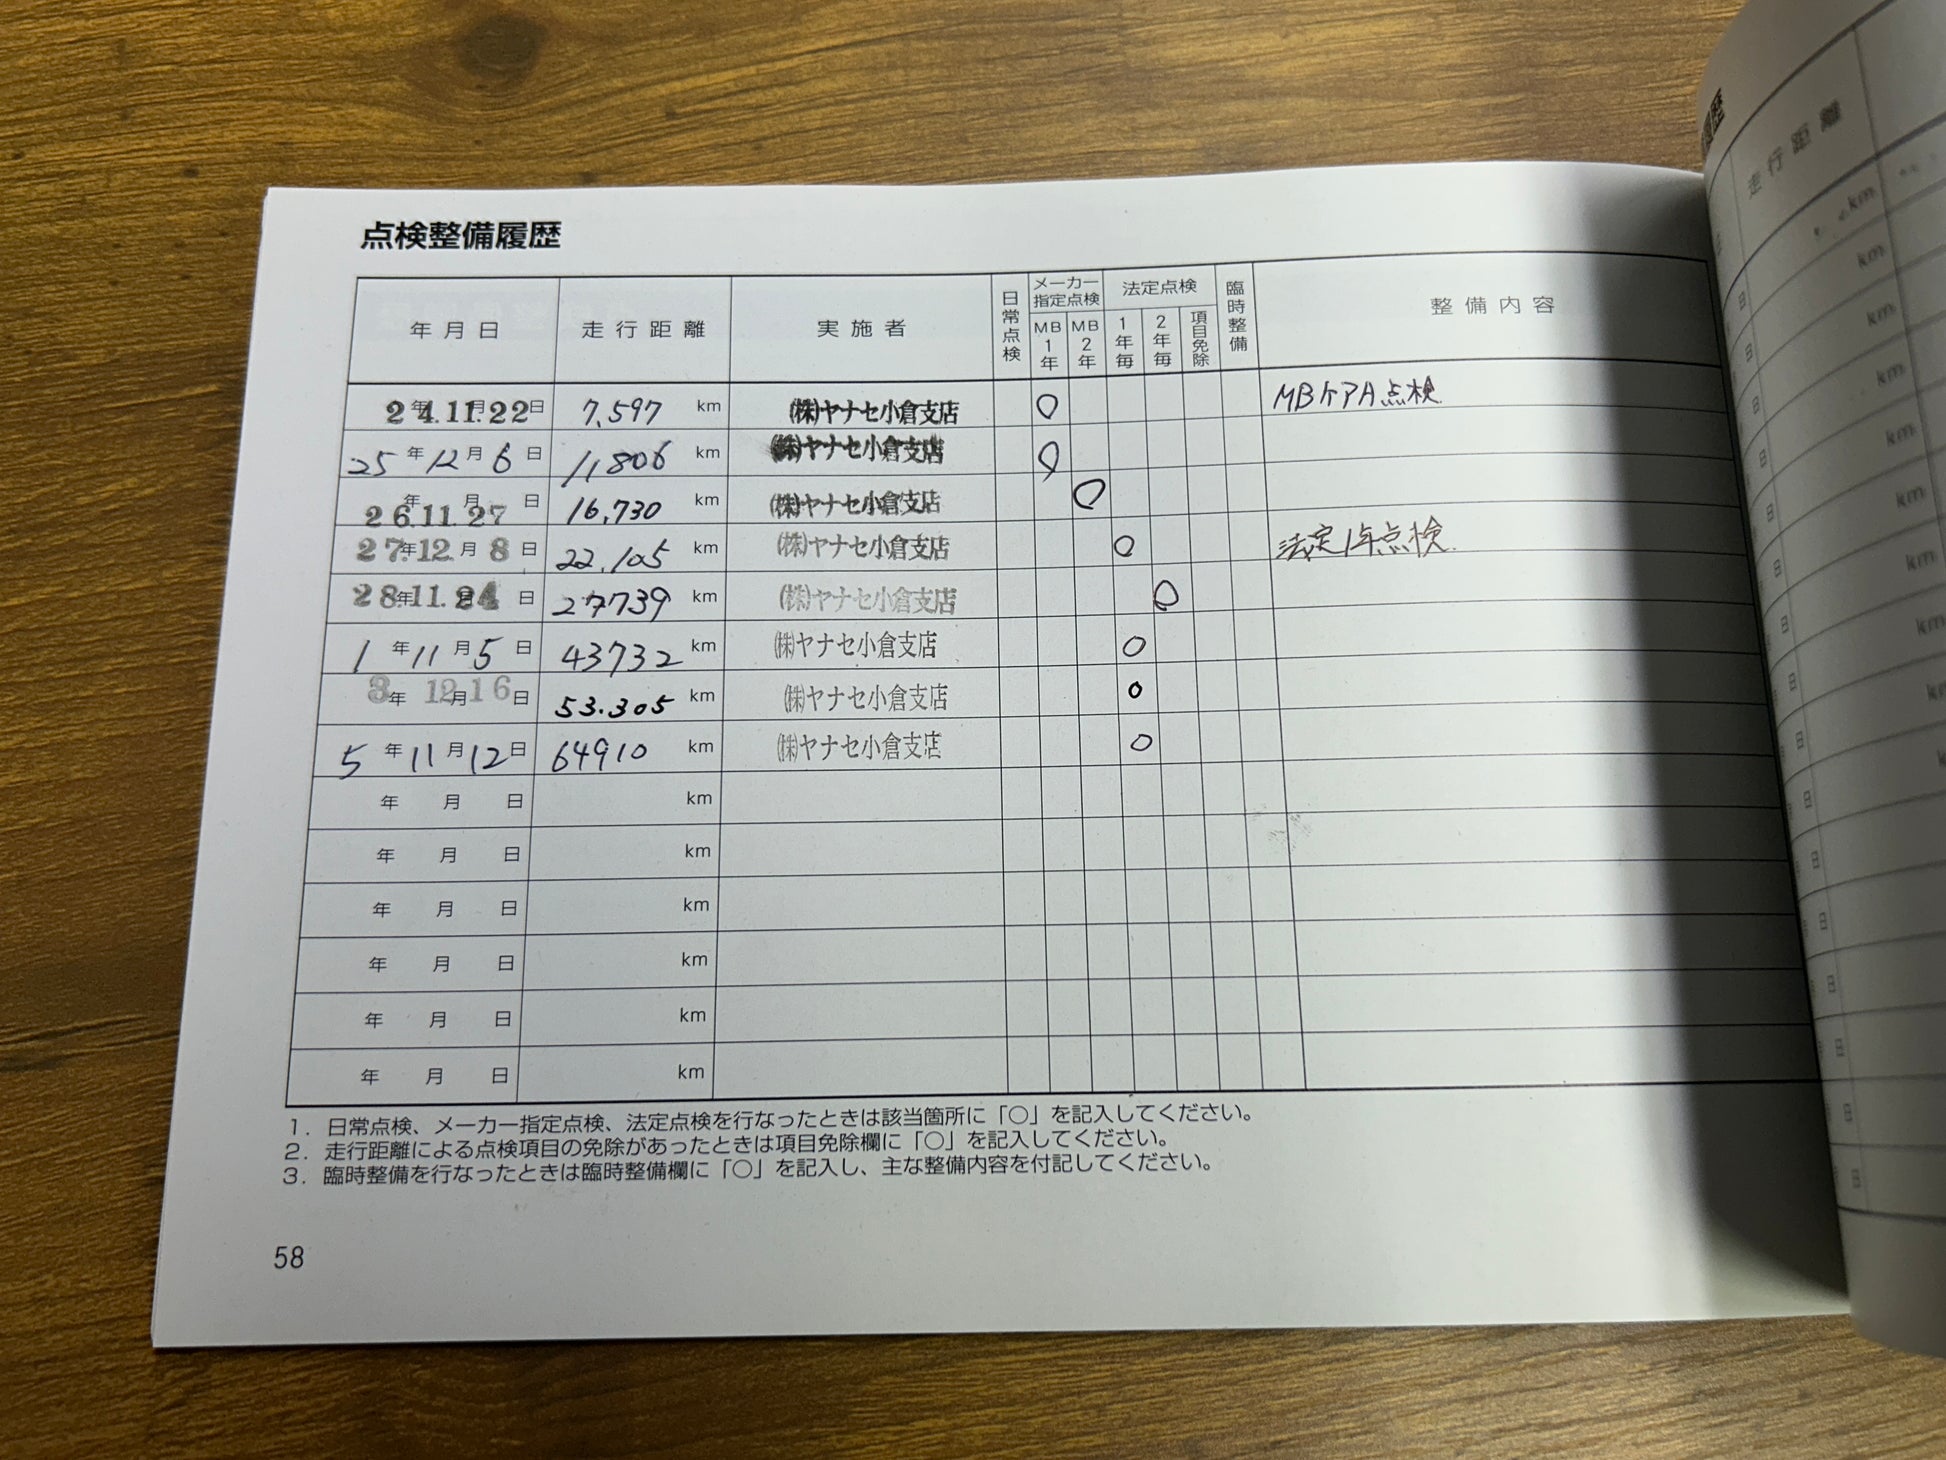 点検整備履歴
年月日 走行距離 実施者 日常点検 メーカー指定点検 MB1年 MB2年 法定点検 1年毎 2年毎 項目免除 臨時整備 整備内容
24年11月22日 7,597 km ㈱ヤナセ小倉支店 ○ MBケアA点検
25年12月6日 11806 km ㈱ヤナセ小倉支店 ○
26.11.27 年月日 16,730 km ㈱ヤナセ小倉支店 ○
27年12月8日 22,105 km ㈱ヤナセ小倉支店 ○ 法定1年点検
28年11.24日 27739 km ㈱ヤナセ小倉支店 ○
1年11月5日 43732 km ㈱ヤナセ小倉支店 ○
3年12月16日 53.305 km ㈱ヤナセ小倉支店 ○
5年11月12日 64910 km ㈱ヤナセ小倉支店 ○
年 月 日 km
年 月 日 km
年 月 日 km
年 月 日 km
年 月 日 km
年 月 日 km
1. 日常点検、メーカー指定点検、法定点検を行なったときは該当箇所に「○」を記入してください。
2. 走行距離による点検項目の免除があったときは項目免除欄に「○」を記入してください。
3. 臨時整備を行なったときは臨時整備欄に「○」を記入し、主な整備内容を付記してください。
58
走行距離
km
km
km
km
km
km
km
km
km